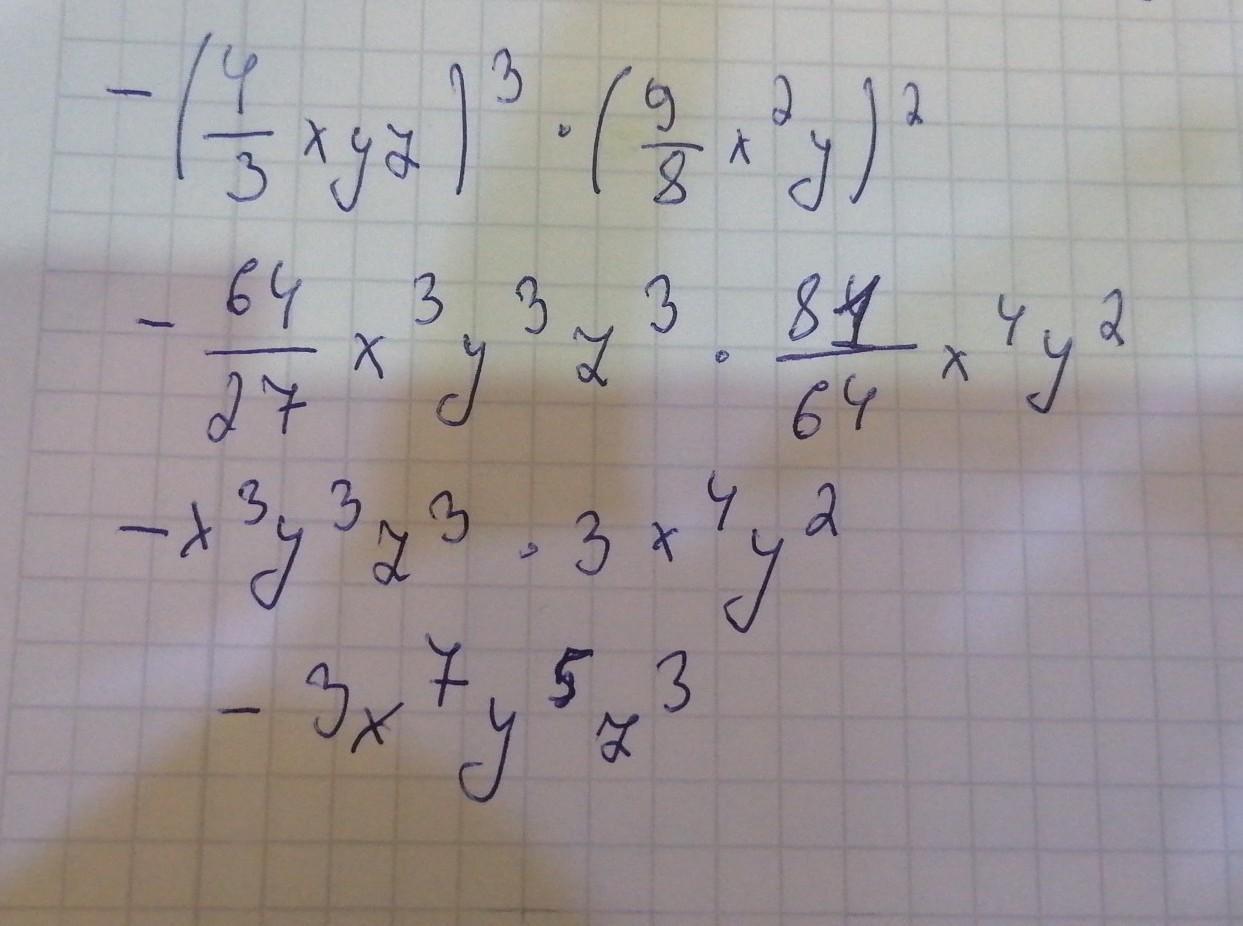 -(4/3 xyz)^3 · (9/8 x^2y)^2
- 64/27 x^3y^3z^3 · 81/64 x^4y^2
-x^3y^3z^3 · 3x^4y^2
- 3x^7y^5z^3